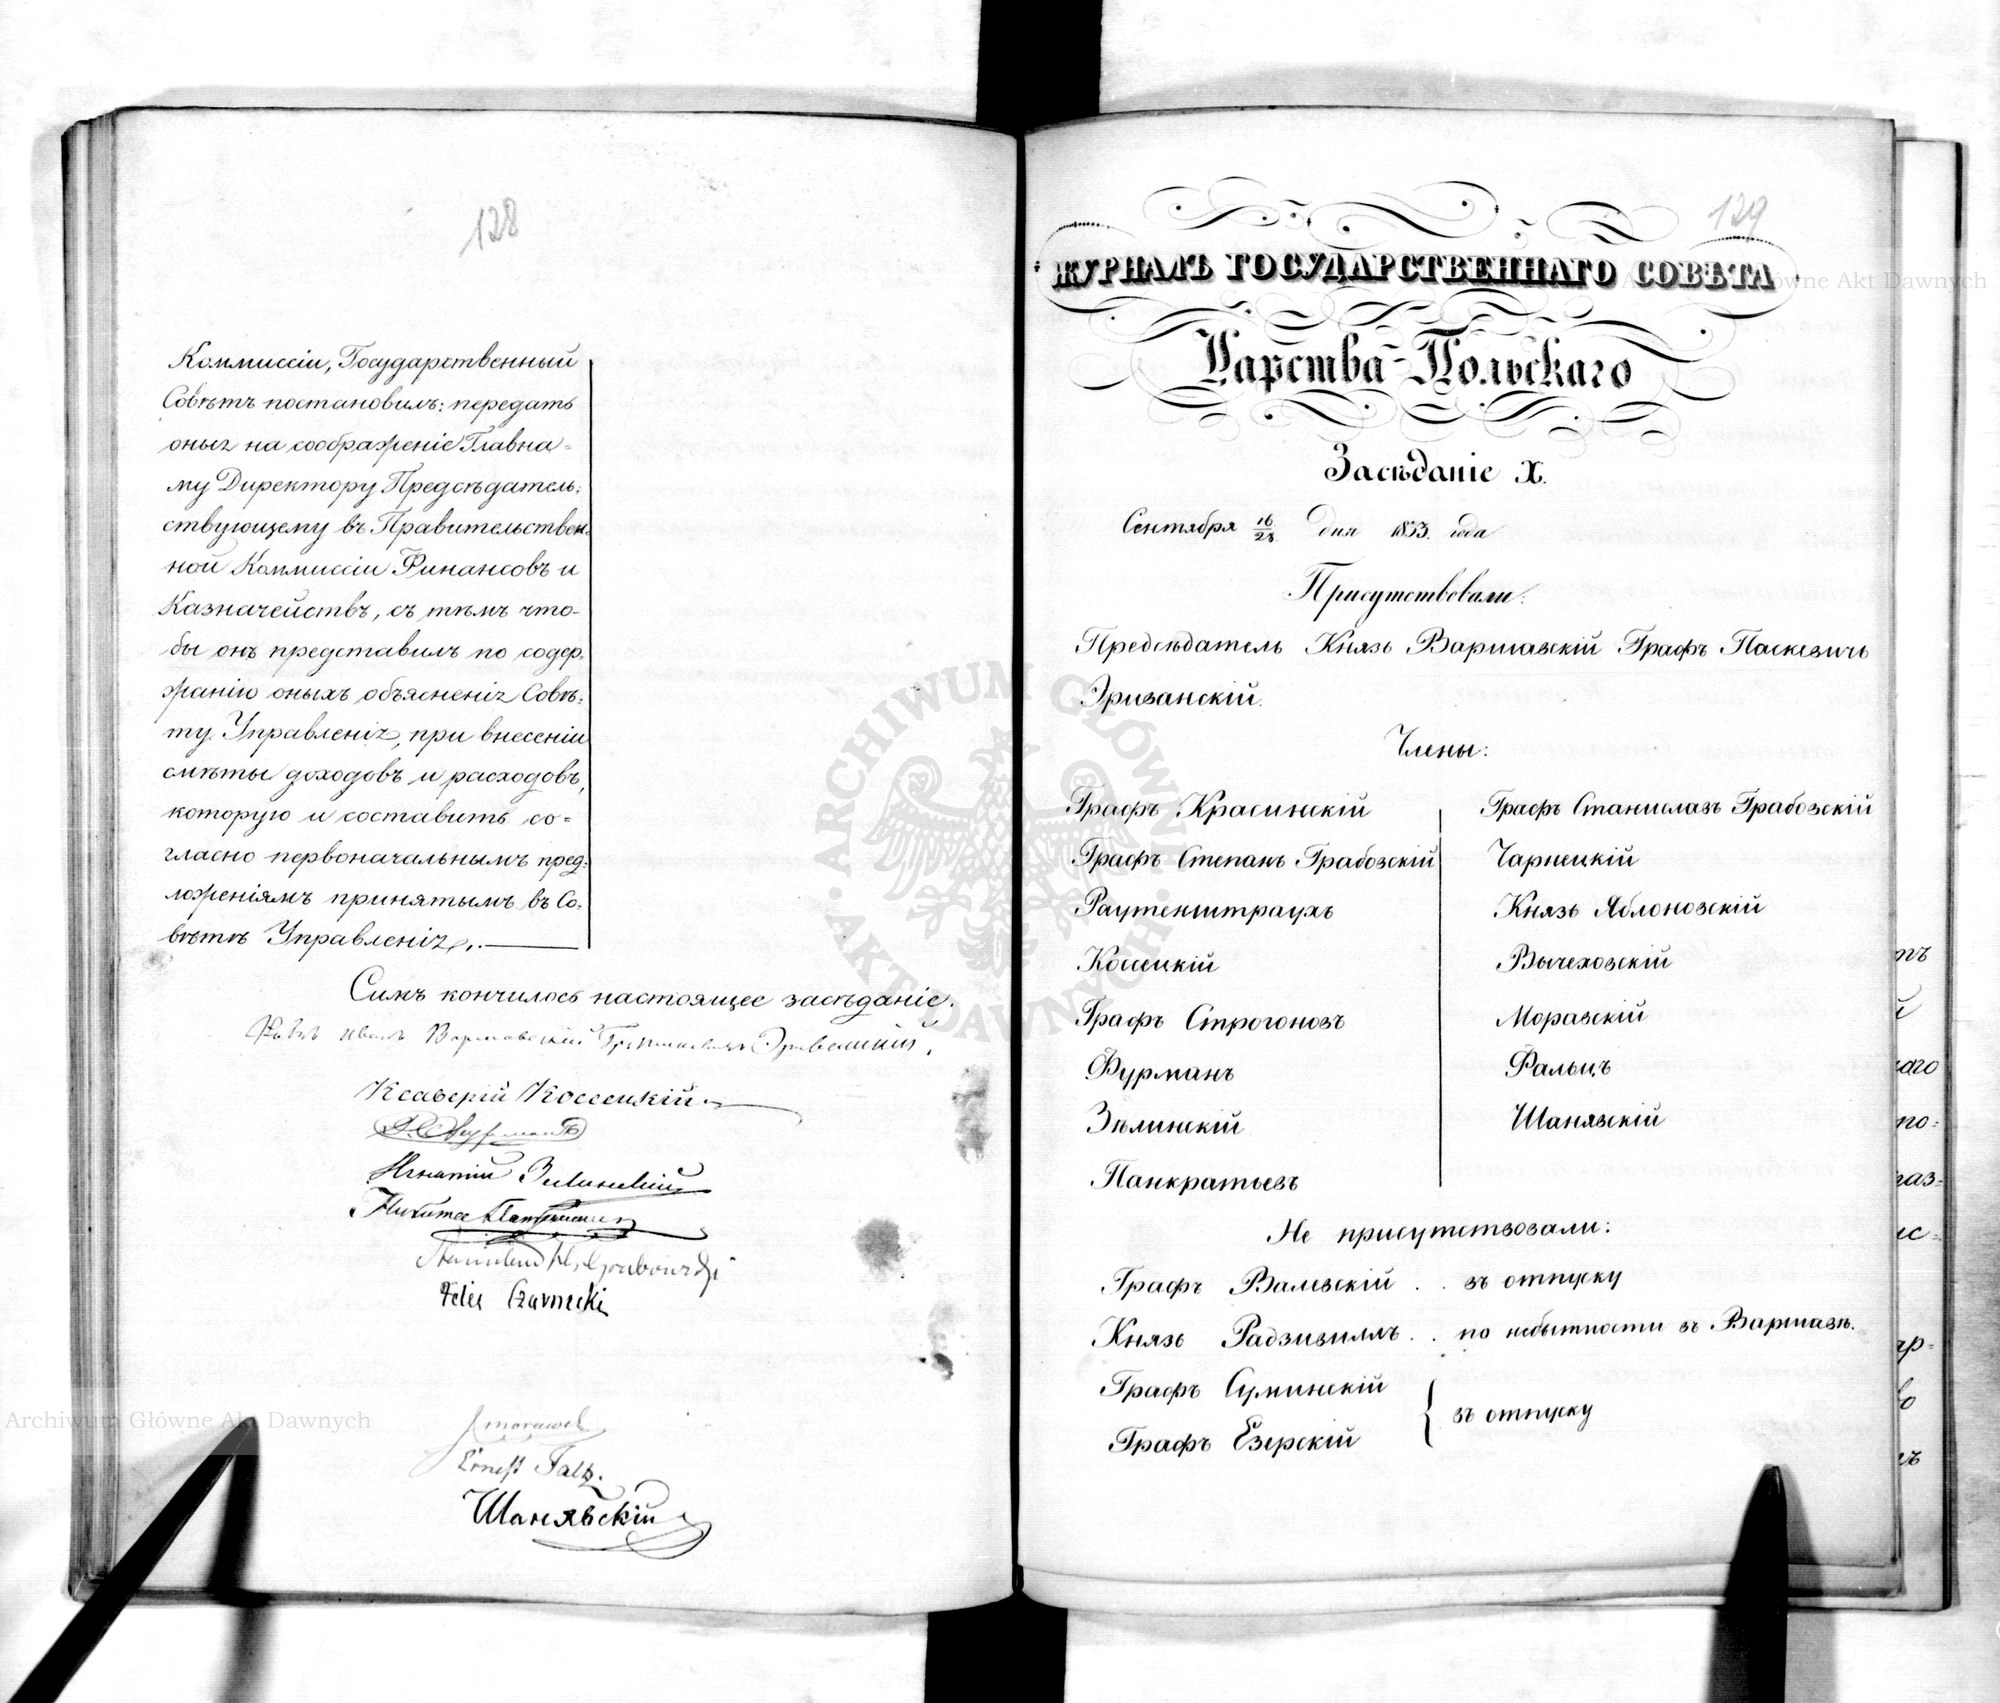 128
Коммиссіи, Государственный
Совѣтъ постановилъ: передать
оныя на соображеніе Главна=
му Директору Предсѣдатель:
ствующему въ Правительствен:
ной Коммиссіи Финансовъ и
Казначействъ, съ тѣмъ что-
бы онъ представилъ по содер:
жанію оныхъ объясненія Совѣ:
ту Управленія, при внесеніи
смѣты доходовъ и расходовъ,
которую и составить со=
гласно первоначальнымъ пред:
ложеніямъ принятымъ въ Со:
вѣтѣ Управленія.
Симъ кончилось настоящее засѣданіе.
Князь Варшавскій Эриванскій.
Ксаверій Коссецкій
Фурманъ
Игнатій Зѣлинскій
Никита Панкратьевъ
Grabowski
Felix Czarnecki
J Morawski
Ernest Faltz.
Шанявскій
129
ЖУРНАЛЪ ГОСУДАРСТВЕННАГО СОВѢТА
Царства Польскаго
Засѣданіе X.
Сентября 16/28 дня 1833. года
Присутствовали:
Предсѣдатель Князь Варшавскій Графъ Паскевичъ
Эриванскій.
Члены:
Графъ Красинскій
Графъ Степанъ Грабовскій
Раутенштраухъ
Коссецкій
Графъ Строгоновъ
Фурманъ
Зѣлинскій
Панкратьевъ
Графъ Станиславъ Грабовскій
Чарнецкій
Князь Яблоновскій
Вычеховскій
Моравскій
Фальцъ
Шанявскій
Не присутствовали:
Графъ Валевскій . . въ отпуску
Князь Радзивиллъ . . по небытности въ Варшавѣ.
Графъ Суминскій
Графъ Езерскій
въ отпуску
ARCHIWUM GŁÓWNE AKT DAWNYCH
Archiwum Główne Akt Dawnych
Główne Akt Dawnych